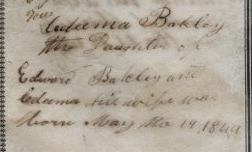 Edeema Bakley
the Daughter of
Edward Bakley and
Edeema his wife was
Born May the 14 1844